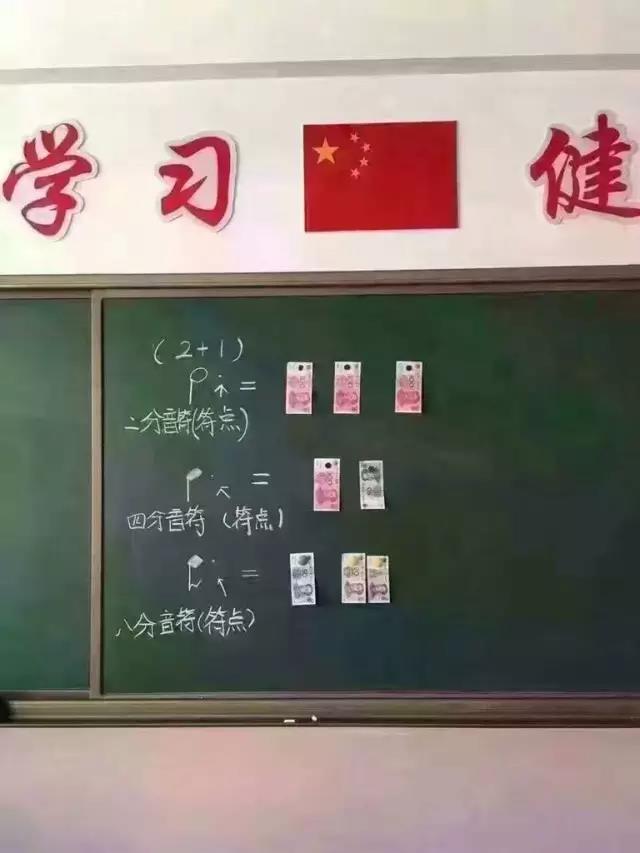 学习 健
(2+1)
=
二分音符(符点)
=
四分音符 (符点)
=
八分音符(符点)